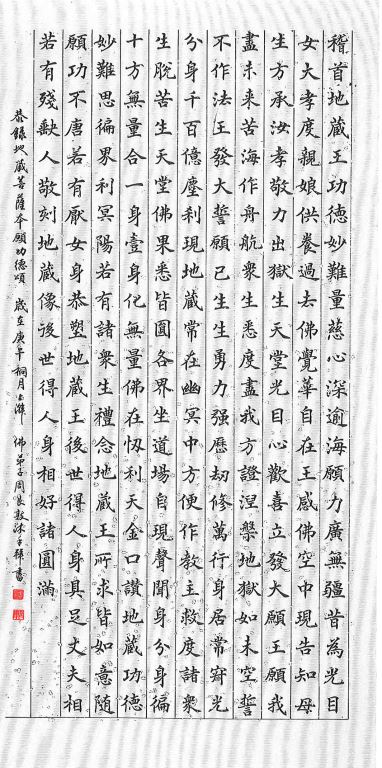 稽首地藏王功德妙難量慈心深逾海願力廣無疆昔為光目
女大孝度親娘供養過去佛覺華自在王感佛空中現告知母
生方承汝孝敬力出獄生天堂光目心歡喜立發大願王願我
盡未來苦海作舟航衆生悉度盡我方證涅槃地獄如未空誓
不作法王發大誓願已生生勇力强歷劫修萬行身居常寂光
分身千百億塵利現地藏常在幽冥中方便作教主救度諸衆
生脫苦生天堂佛果悉皆圓各界坐道場自現聲聞身分身徧
十方無量合一身壹身化無量佛在忉利天金口讚地藏功德
妙難思徧界利冥陽若有諸衆生禮念地藏王所求皆如意隨
願功不唐若有厭女身恭塑地藏王後世得人身具足丈夫相
若有殘缺人敬刻地藏像後世得人身相好諸圓滿
恭錄地藏菩薩本願功德頌 歲在庚午桐月上澣 佛弟子周良敦沐手拜書